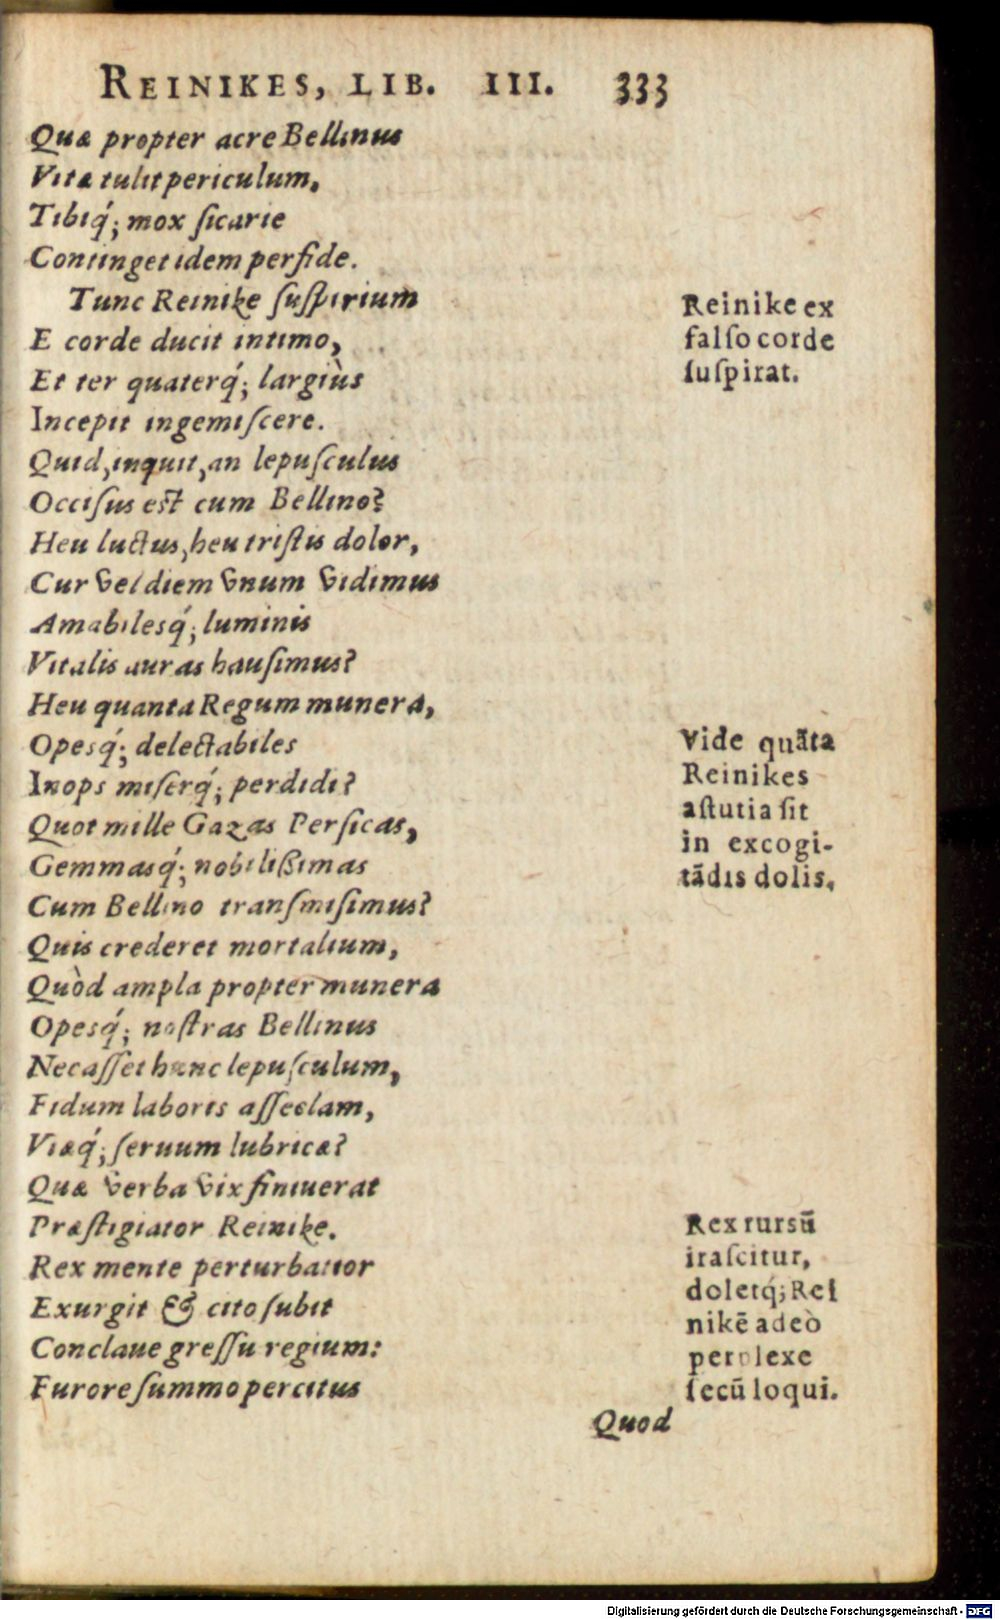 REINIKES, LIB. III. 333
Quæ propter acre Bellinus
Vitæ tulit periculum,
Tibiq́; mox ſicarie
Continget idem perfide.
Tunc Reinike ſuſpirium
E corde ducit intimo,
Et ter quaterq́; largiùs
Incepit ingemiſcere.
Quid, inquit, an lepuſculus
Occiſus eſt cum Bellino?
Heu luctus, heu triſtis dolor,
Cur vel diem vnum vidimus
Amabilesq́; luminis
Vitalis auras hauſimus?
Heu quanta Regum munera,
Opesq́; delectabiles
Inops miſerq́; perdidi?
Quot mille Gazas Perſicas,
Gemmasq́; nobilißimas
Cum Bellino transmiſimus?
Quis crederet mortalium,
Quòd ampla propter munera
Opesq́; noſtras Bellinus
Necaſſet hunc lepuſculum,
Fidum laboris aſſeclam,
Viæq́; ſeruum lubricæ?
Quæ verba vix finiuerat
Præſtigiator Reinike.
Rex mente perturbatior
Exurgit & cito ſubit
Conclaue greſſu regium:
Furore ſummo percitus
Reinike ex
falſo corde
ſuſpirat.
Vide quãta
Reinikes
aſtutia ſit
in excogi-
tãdis dolis.
Rex rursũ
iraſcitur,
doletq́; Rei
nikẽ adeò
perplexe
ſecũ loqui.
Quod
Digitalisierung gefördert durch die Deutsche Forschungsgemeinschaft - DFG